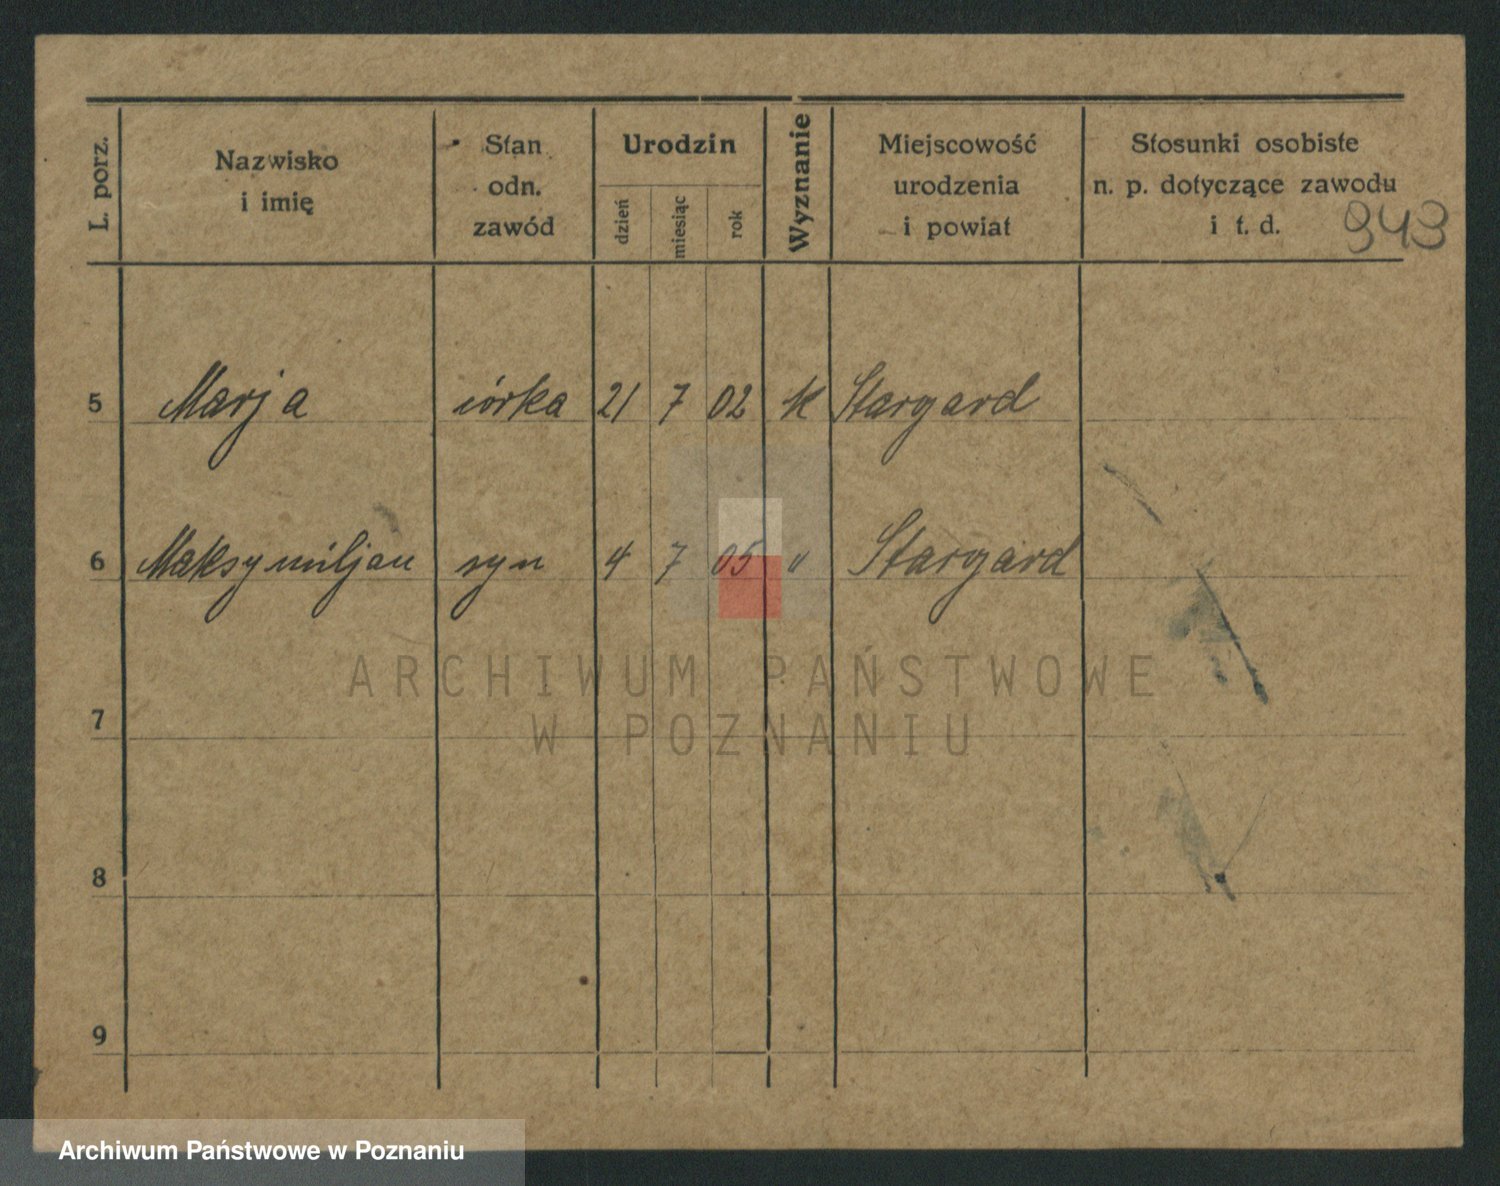 L. porz.
Nazwisko
i imię
Stan
odn.
zawód
Urodzin
dzień
miesiąc
rok
Wyznanie
Miejscowość
urodzenia
i powiat
Stosunki osobiste
n. p. dotyczące zawodu
i t. d.
943
5 Marja córka 21 7 02 k Stargard
6 Maksymiljan syn 4 7 05 " Stargard
ARCHIWUM PAŃSTWOWE
W POZNANIU
7
8
9
Archiwum Państwowe w Poznaniu